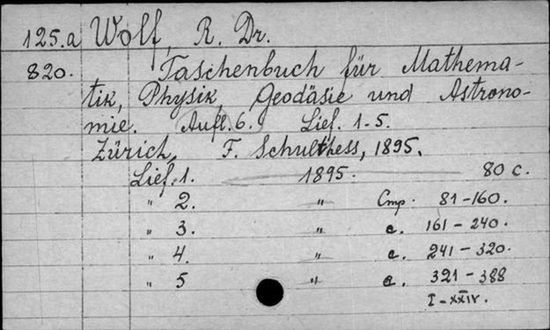 125.a Wolf, R. Dr.
820. Taschenbuch für Mathema-
tik, Physik, Geodäsie und Astrono-
mie. Aufl. 6. Lief. 1-5.
Zürich, F. Schulthess, 1895.
Lief. 1. 1895. 80 c.
" 2. " Стр. 81-160.
" 3. " с. 161-240.
" 4. " с. 241-320.
" 5 " с. 321-388
I-XXIV.